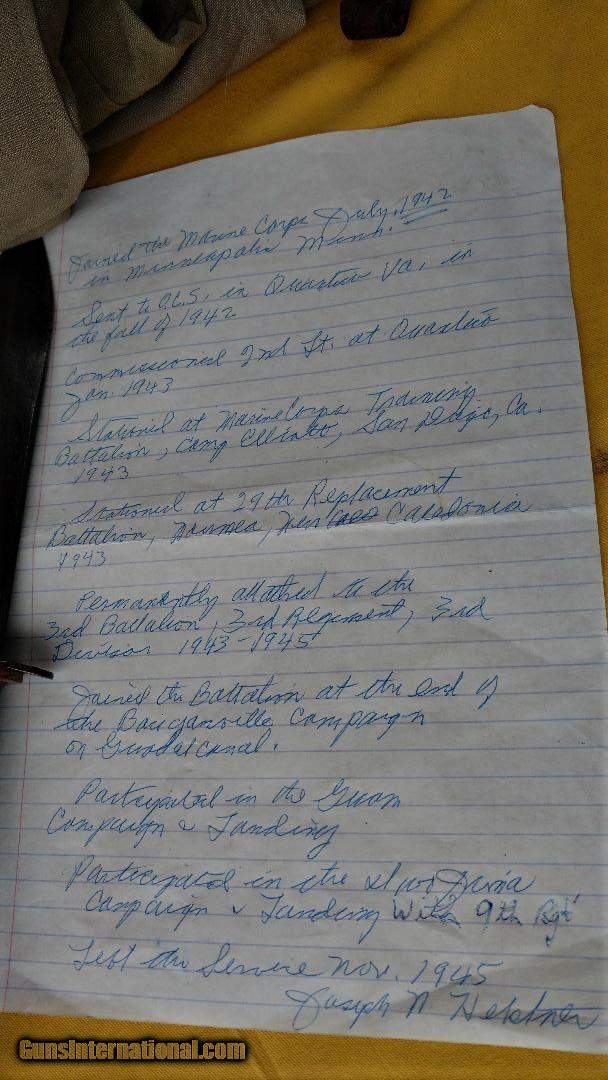 Joined the Marine Corps July, 1942
in Minneapolis Minn.
Sent to O.C.S. in Quantico Va, in
the fall of 1942
Commissioned 2nd Lt. at Quantico
Jan. 1943
Stationed at Marine Corps Training
Battalion, Camp Elliott, San Diego, Ca.
1943
Stationed at 29th Replacement
Battalion, Noumea, New Caledonia
1943
Permanently attached to the
3rd Battalion, 3rd Regiment, 3rd
Division 1943-1945
Joined the Battalion at the end of
the Bouganville Campaign
on Guadalcanal.
Participated in the Guam
Campaign & Landing
Participated in the Iwo Jima
Campaign & Landing With 9th Rgt
Left the Service Nov. 1945
Joseph N
GunsInternational.com